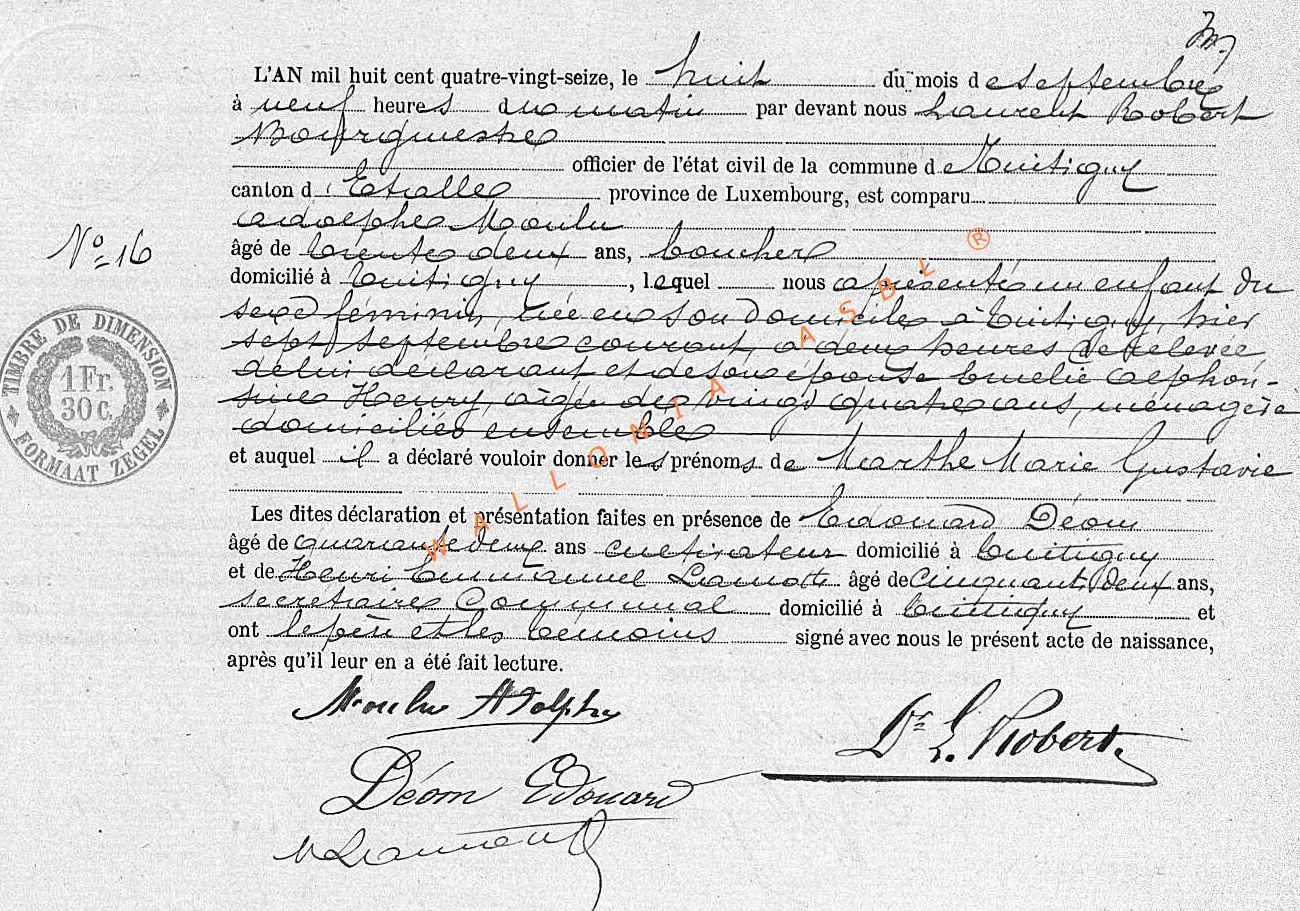 L'AN mil huit cent quatre-vingt-seize, le huit du mois de septembre
à neuf heures du matin par devant nous Laurent Robert
Bourgmestre
officier de l'état civil de la commune de Tintigny
canton d'Etalle province de Luxembourg, est comparu
Adolphe Moulu
âgé de trente deux ans, boucher
domicilié à Tintigny, lequel nous a présenté un enfant du
sexe féminin, née en son domicile à Tintigny, hier
sept septembre courant, à deux heures de relevée,
de lui déclarant et de son épouse Emelie Alphon-
sine Henry, âgée de vingt quatre ans, ménagère
domiciliés ensemble
et auquel il a déclaré vouloir donner les prénoms de Marthe Marie Gustavie
Les dites déclaration et présentation faites en présence de Edouard Déom
âgé de quarante deux ans cultivateur domicilié à Tintigny
et de Henri Emmanuel Lamotte âgé de cinquante deux ans,
secrétaire communal domicilié à Tintigny et
ont le père et les témoins signé avec nous le présent acte de naissance,
après qu'il leur en a été fait lecture.
N° 16
TIMBRE DE DIMENSION
1 Fr.
30 C.
FORMAAT ZEGEL
WALLONIA ASBL ®
Moulu Adolphe
Dr L. Robert
Déom Edouard